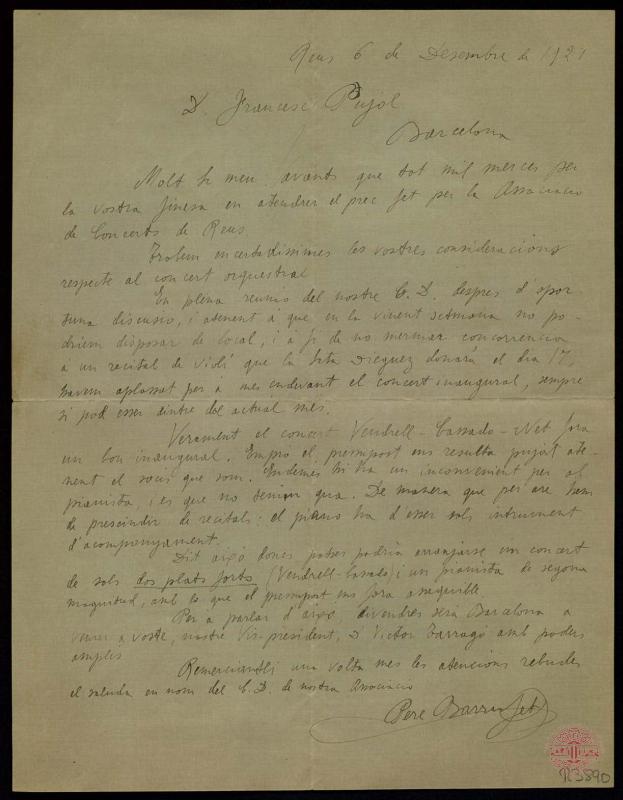 Reus 6 de Desembre de 1921
D. Francesc Pujol
Barcelona
Molt Sr meu: avants que tot mil merces per
la vostra finesa en atendrer el prec fet per la Associacio
de Concerts de Reus.
Trobem encertadissimes les vostres consideracions
respecte al concert orquestral
En plena reunio del nostre C. D. despres d'opor
tuna discusio, i atenent a que en la vinent setmana no po-
driem disposar de local, i a fi de no mermar concorrencia
a un recital de violi que la Srta Dieguez donará el dia 17,
havem aplassat per a mes endevant el concert inaugural, sempre
si pod esser dintre del actual mes.
Verament el concert Vendrell-Cassadó-Net fora
un bon inaugural. Empro el presupost ens resulta pujat ate-
nent el que som. Endemés hi ha un inconvenient per al
pianista, i es que no tenim gra. De manera que per are hem
de prescindir de recitals: el piano ha d'esser sols intrument
d'acompanyament.
Dit aixó doncs potser podria arranjarse un concert
de sols dos plats forts (Vendrell-Cassadó) i un pianista de segona
magnitud, amb lo que el presupost ens fora assequible.
Per a parlar d'aixo, divendres será Barcelona a
veurer a vosté, nostre Vis-president, D. Victor Tarragó amb poders
amplis
Remerciantli una volta mes les atencions rebudes
el saluda en nom del C. D. de nostra Associacio
Pere Barrufet
R3890